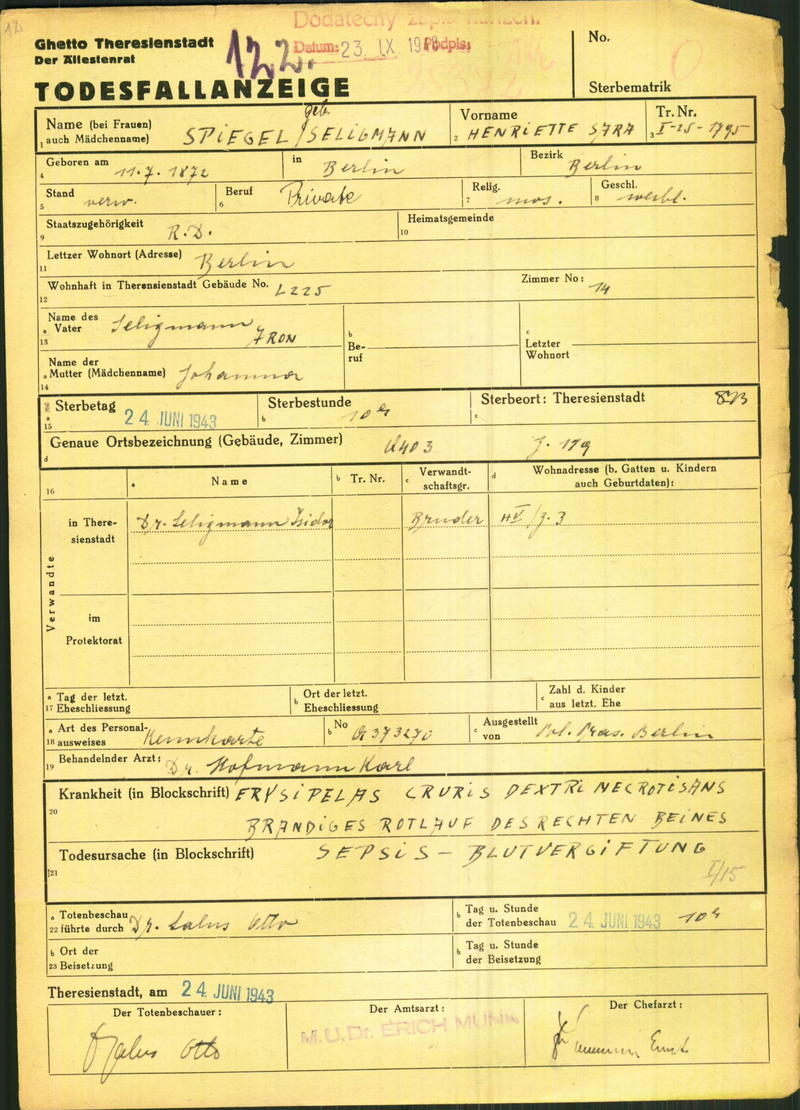 12
Dodatečný zápis
Ghetto Theresienstadt
Der Ältestenrat
122.
Datum: 23. IX 194 Podpis:
No.
TODESFALLANZEIGE
Sterbematrik
Name (bei Frauen) auch Mädchenname) SPIEGEL / geb. SELIGMANN
Vorname HENRIETTE SARA
Tr. Nr. I-25-1795
Geboren am 11.7.1872 in Berlin Bezirk Berlin
Stand verw. Beruf Private Relig. mos. Geschl. weibl.
Staatszugehörigkeit R.D. Heimatsgemeinde
Lettzer Wohnort (Adresse) Berlin
Wohnhaft in Therensienstadt Gebäude No. L 225 Zimmer No: 14
Name des Vater Seligmann ARON
Beruf
Letzter Wohnort
Name der Mutter (Mädchenname) Johanna
Sterbetag 24. JUNI 1943 Sterbestunde 10 h Sterbeort: Theresienstadt
Genaue Ortsbezeichnung (Gebäude, Zimmer) Q403 J. 179
Name Tr. Nr. Verwandtschaftsgr. Wohnadresse (b. Gatten u. Kindern auch Geburtdaten):
Verwandte
in Theresienstadt Dr. Seligmann Isidor Bruder HV/J. 3
im Protektorat
Tag der letzt. Eheschliessung
Ort der letzt. Eheschliessung
Zahl d. Kinder aus letzt. Ehe
Art des Personalausweises Kennkarte No 373270 Ausgestellt von Pol. Präs. Berlin
Behandelnder Arzt: Dr. Hofmann Karl
Krankheit (in Blockschrift) ERYSIPELAS CRURIS DEXTRI NECROTISANS
BRANDIGES ROTLAUF DES RECHTEN BEINES
Todesursache (in Blockschrift) SEPSIS - BLUTVERGIFTUNG
I/15
Totenbeschau führte durch Dr. Salus Otto
Tag u. Stunde der Totenbeschau 24. JUNI 1943 10 h
Ort der Beisetzung
Tag u. Stunde der Beisetzung
Theresienstadt, am 24. JUNI 1943
Der Totenbeschauer: Der Amtsarzt: Der Chefarzt:
Salus Otto
M.U.Dr. ERICH MUNK
Ernst